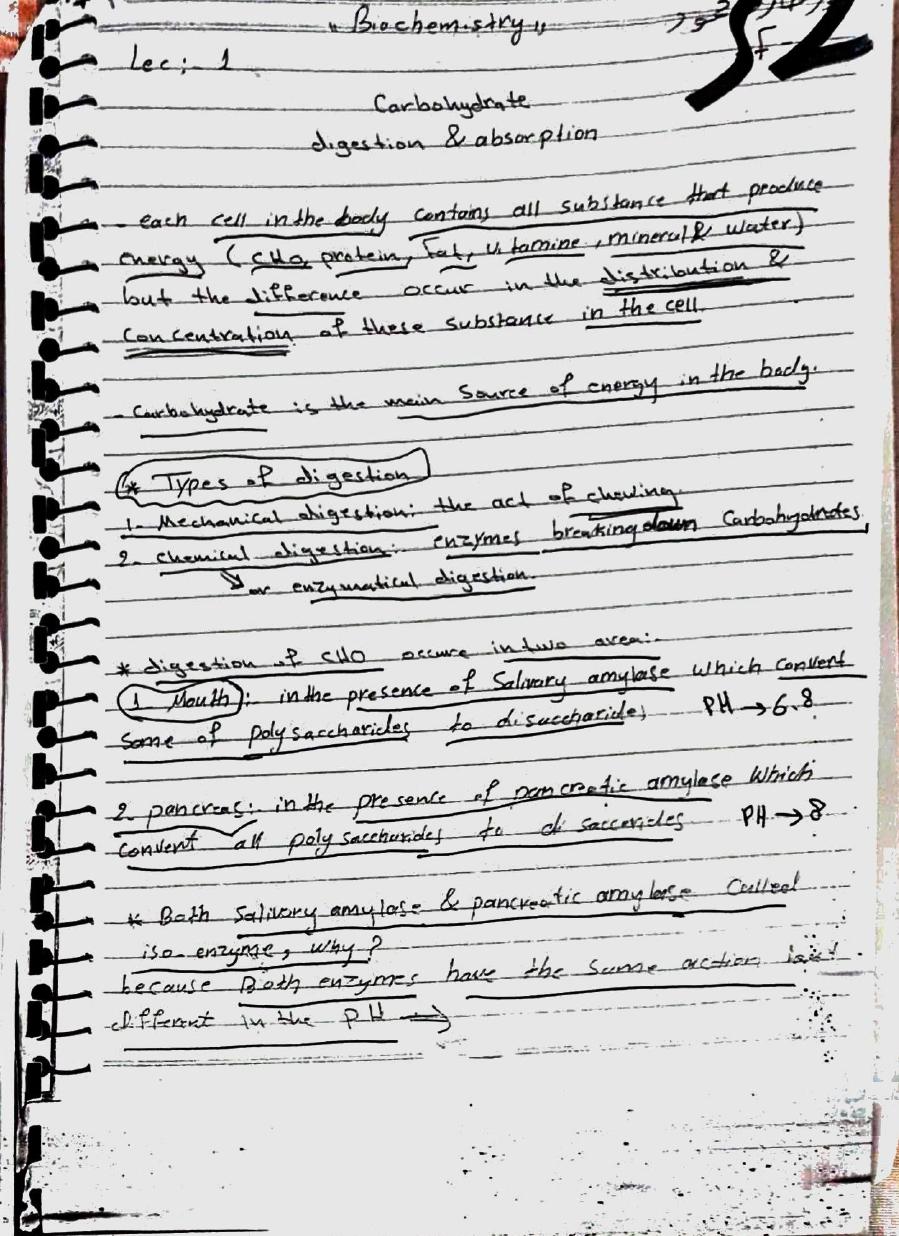 "Biochemistry"
52
Lec:- 1
Carbohydrate
digestion & absorption
- each cell in the body contains all substance that produce
energy (CHO, protein, Fat, vitamine, mineral & water)
but the difference occur in the distribution &
Concentration of these substance in the cell.
- Carbohydrate is the main Source of energy in the body.
* Types of digestion
1- Mechanical digestion: the act of chewing.
2- chemical digestion: enzymes breaking down Carbohydrates.
↘ or enzymatical digestion.
* digestion of CHO occure in two area:-
1 Mouth: in the presence of Salivary amylase which convert
Some of polysaccharides to disaccharides PH → 6.8
2 pancreas: in the presence of pancreatic amylase Which
convert all polysaccharides to disaccarides PH → 8
* Both Salivary amylase & pancreatic amylase Called
iso-enzyme, Why?
because Both enzymes have the same action but
different in the PH →